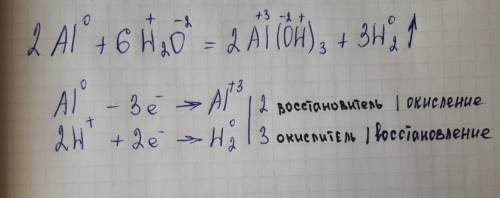 2Al⁰ + 6H₂⁺O⁻² = 2Al⁺³(O⁻²H⁺)₃ + 3H₂⁰↑
Al⁰ − 3e⁻ → Al⁺³ | 2 восстановитель | окисление
2H⁺ + 2e⁻ → H₂⁰ | 3 окислитель | восстановление